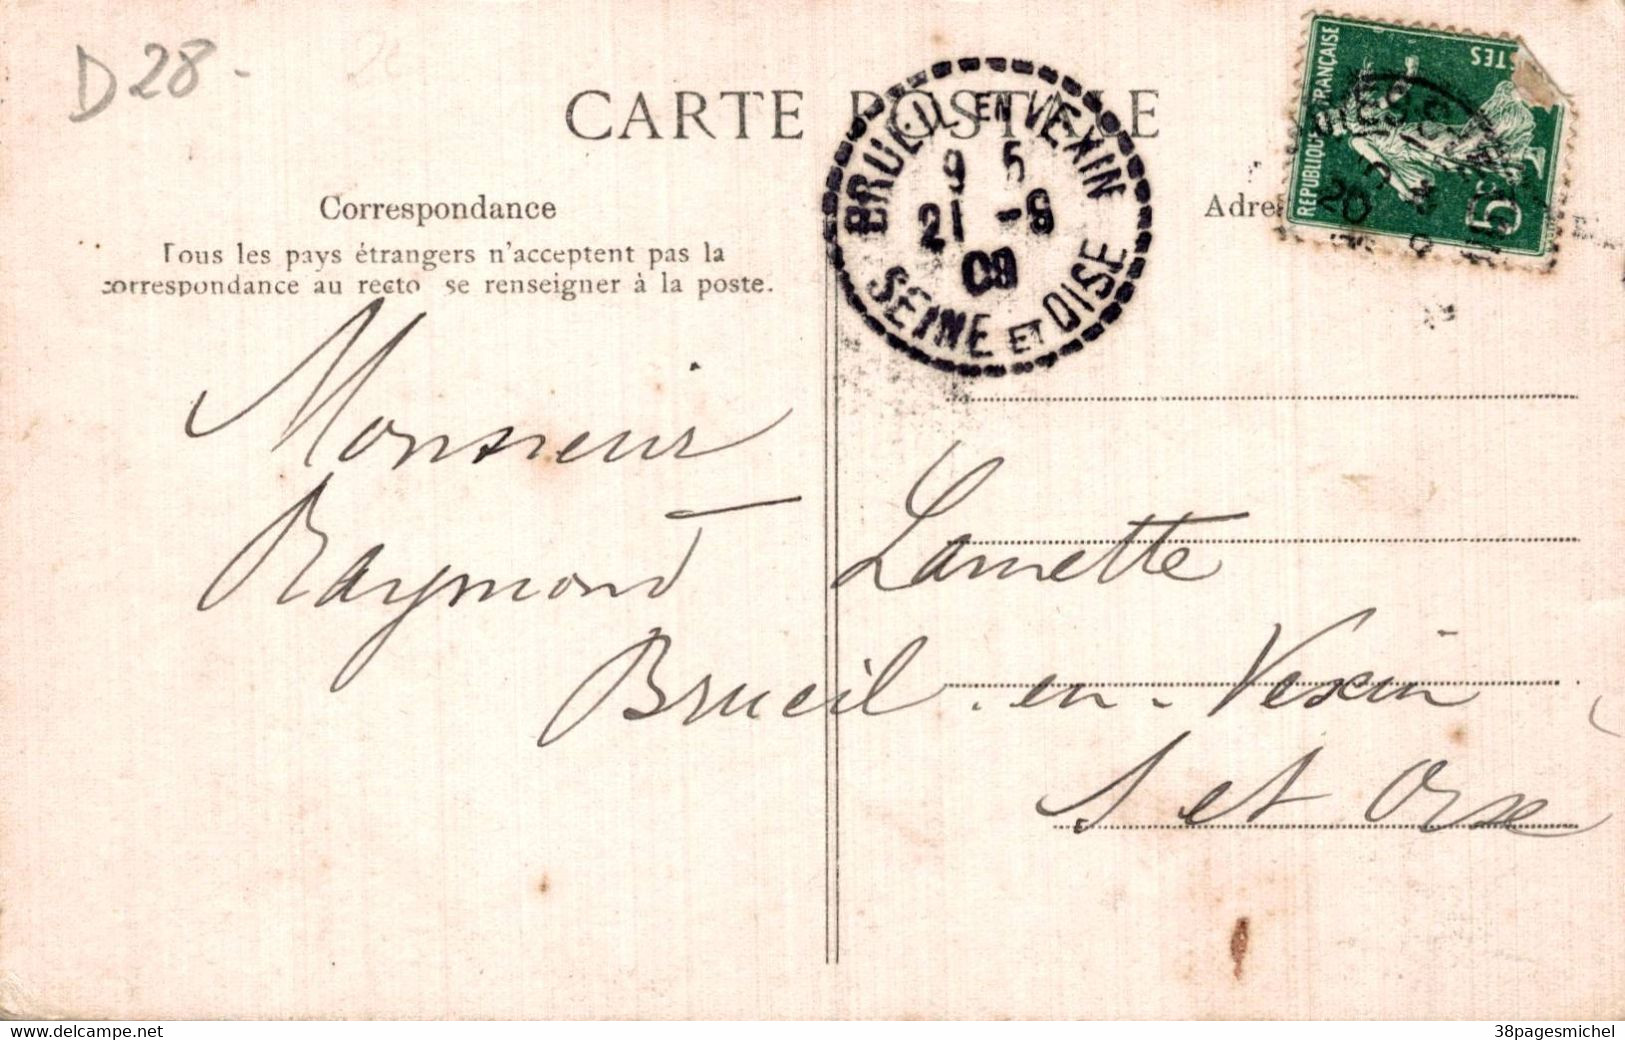 D28-
CARTE POSTALE
Correspondance
Tous les pays étrangers n'acceptent pas la
correspondance au recto se renseigner à la poste.
BRUEIL EN VEXIN
9 5
21 -9
09
SEINE ET OISE
RÉPUBLIQUE FRANÇAISE
5c
20
Monsieur
Raymond Lamette
Brueil-en-Vexin
S et Oise
www.delcampe.net
38pagesmichel